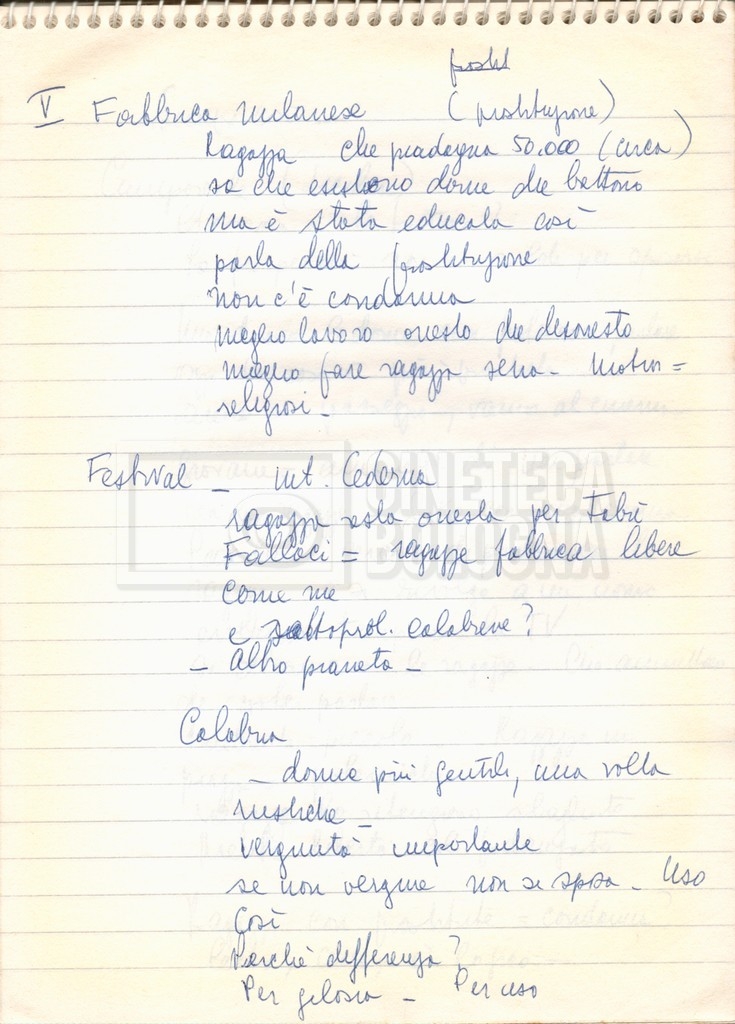 prost
V Fabbrica milanese (prostituzione)
Ragazza che guadagna 50.000 (circa)
sa che esistono donne che battono
ma è stata educata così
parla della prostituzione
non c'è condanna
meglio lavoro onesto che disonesto
meglio fare ragazza seria - Motivi =
religiosi -
Festival - int. Cederna
ragazza resta onesta per Tabù
Fallaci = ragazze fabbrica libere
come me
e sottoprol. calabrese?
- Altro pianeta -
Calabria
- donne più gentili, una volta
rustiche -
verginità importante
se non vergine non si sposa - Uso
così
Perchè differenza?
Per gelosia - Per uso
CINETECA
BOLOGNA